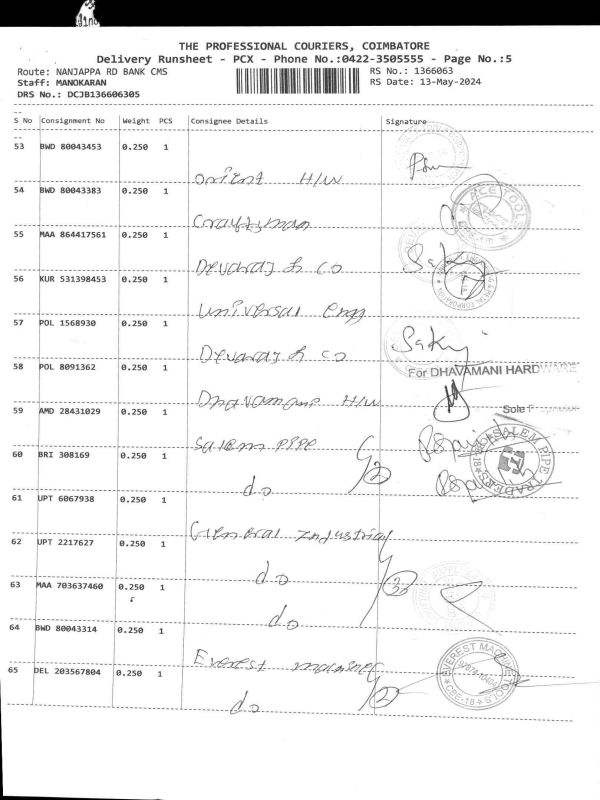 THE PROFESSIONAL COURIERS, COIMBATORE
Delivery Runsheet - PCX - Phone No.:0422-3505555 - Page No.:5
Route: NANJAPPA RD BANK CMS
RS No.: 1366063
Staff: MANOKARAN
RS Date: 13-May-2024
DRS No.: DCJB136606305
S No Consignment No Weight PCS Consignee Details Signature
53 BWD 80043453 0.250 1
Orient H/W
54 BWD 80043383 0.250 1
Craftsman
ACE TOOLS
55 MAA 864417561 0.250 1
Devaraj & Co
Sakyi
56 KUR 531398453 0.250 1
Universal Engg
57 POL 1568930 0.250 1
Devaraj & Co
58 POL 8091362 0.250 1
For DHAVAMANI HARDWARE
Dhavamani H/W
Sole
59 AMD 28431029 0.250 1
Salem Pipe
60 BRI 308169 0.250 1
do
2
SALEM PIPE TRADERS
61 UPT 6067938 0.250 1
General Industrial
62 UPT 2217627 0.250 1
do
63 MAA 703637460 0.250 1
do
64 BWD 80043314 0.250 1
Everest
EVEREST MACHINE TOOLS
CBE-18
65 DEL 203567804 0.250 1
do
2